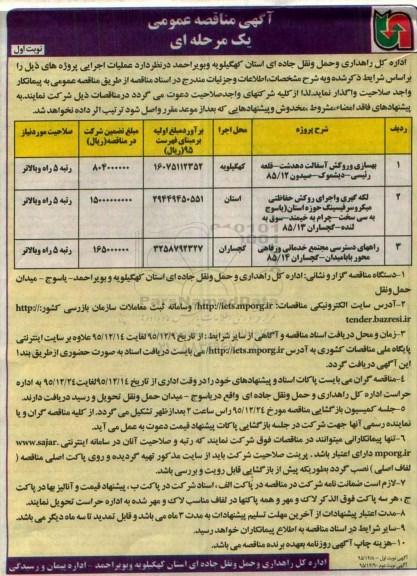 آگهی مناقصه عمومی
یک مرحله ای
نوبت اول
اداره کل راهداری وحمل ونقل جاده ای استان کهگیلویه وبویراحمد درنظردارد عملیات اجرایی پروژه های ذیل را
براساس شرایط ذکرشده وبه شرح مشخصات،اطلاعات وجزئیات مندرج در اسناد مناقصه از طریق مناقصه عمومی به پیمانکار
واجد صلاحیت واگذار نمایدلذا ازکلیه شرکتهای واجدصلاحیت دعوت می گردد درمناقصات ذیل شرکت نمایند.به
پیشنهادهای فاقد امضاء،مشروط ،مخدوش وپیشنهادهایی که بعداز موعد مقرر واصل شود ترتیب اثر داده نخواهد شد.
ردیف شرح پروژه محل اجرا برآورد مبلغ اولیه برمبنای فهرست ۹۵(ریال) مبلغ تضمین شرکت در مناقصه(ریال) صلاحیت موردنیاز
۱ بهسازی وروکش آسفالت دهدشت-قلعه رئیسی-دیشموک-صیدون ۸۵/۱۲ کهگیلویه ۱۶۰۷۵۱۱۲۳۵۲ ۸۰۴۰۰۰۰۰۰ رتبه ۵ راه وبالاتر
۲ لکه گیری واجرای روکش حفاظتی میکروسرفیسینگ حوزه استان(یاسوج به سی سخت-چرام به خیمند-سوق به لنده-گچساران ۸۵/۱۳ استان ۲۹۴۴۹۴۵۰۵۵۱ ۱۵۰۰۰۰۰۰۰۰ رتبه ۵ راه وبالاتر
۳ راههای دسترسی مجتمع خدماتی ورفاهی محور بابامیدان-گچساران ۸۵/۱۴ گچساران ۳۲۵۸۷۹۲۳۲۷ ۱۶۵۰۰۰۰۰۰ رتبه ۵ راه وبالاتر
۱-دستگاه مناقصه گزار ونشانی: اداره کل راهداری و حمل ونقل جاده ای استان کهگیلویه و بویراحمد- یاسوج - میدان
حمل ونقل
۲-آدرس سایت الکترونیکی مناقصات: http://iets.mporg.ir وسامانه ثبت معاملات سازمان بازرسی کشور: http://
tender.bazresi.ir
۳-زمان و محل دریافت اسناد مناقصه و آگاهی از سایر شرایط : از تاریخ ۹۵/۱۲/۹ لغایت ۹۵/۱۲/۱۴ علاوه بر سایت اینترنتی
پایگاه ملی مناقصات کشوری به آدرس http://iets.mporg.ir می بایست دریافت اسناد به صورت حضوری از طریق بند۱
این آگهی دریافت گردد.
۴-مناقصه گران می بایست پاکات اسناد و پیشنهادهای خود را در وقت اداری از تاریخ ۹۵/۱۲/۱۴ لغایت ۹۵/۱۲/۲۴ به اداره
حراست اداره کل راهداری و حمل ونقل جاده ای واقع در یاسوج - میدان حمل ونقل تحویل و رسید دریافت دارند.
۵-جلسه کمیسیون بازگشایی مناقصه مورخ ۹۵/۱۲/۲۴ راس ساعت ۲ بعدازظهر تشکیل می گردد. از کلیه مناقصه گران و یا
نماینده رسمی آنها جهت شرکت در جلسه بازگشایی پاکات پیشنهاد قیمت دعوت به عمل می آید.
۶-تنها پیمانکارانی میتوانند در مناقصات فوق شرکت نمایند که رتبه و صلاحیت آنان در سامانه اینترنتی www.sajar.
mporg.ir دارای اعتبار باشد . پرینت صلاحیت شرکت باید از سایت مذکور تهیه گردیده و روی پاکت اصلی مناقصه (
لفاف اصلی ) نصب گردد بطوریکه پیش از بازگشایی قابل رویت و بررسی باشد.
۷-لازم است ضمانت نامه شرکت در مناقصه در پاکت الف ، اسناد شرکت در پاکت ب ، پیشنهاد قیمت و آنالیز بها در پاکت
ج ، هر سه پاکت فوق الذکر لاک و مهر و همه پاکتها در لفاف مناسب لاک و مهر شده به اداره حراست تحویل نمایند.
۸-مدت اعتبار پیشنهادات از آخرین مهلت تسلیم پیشنهادات به مدت ۳ ماه می باشد و قابل تمدید تا سه ماه دیگر می باشد.
۹-سایر شرایط در اسناد مناقصه به اطلاع پیمانکاران خواهد رسید.
۱۰-هزینه چاپ آگهی روزنامه بعهده برنده مناقصه می باشد.
آگهی نوبت اول: ۹۵/۱۲/۸
آگهی نوبت دوم: ۹۵/۱۲/۹
اداره کل راهداری و حمل ونقل جاده ای استان کهگیلویه وبویراحمد - اداره پیمان و رسیدگی